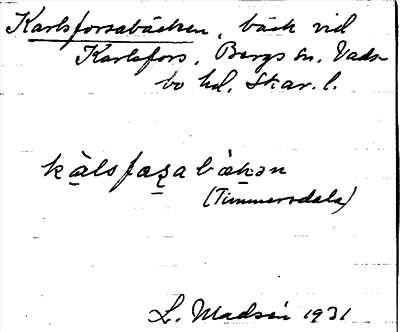 Karlsforsabäcken, bäck vid
Karlsfors, Bergs sn. Vads-
bo hd, Skar. l.
kàlsfaʂabäkən
(Timmersdala)
L. Madsén 1931